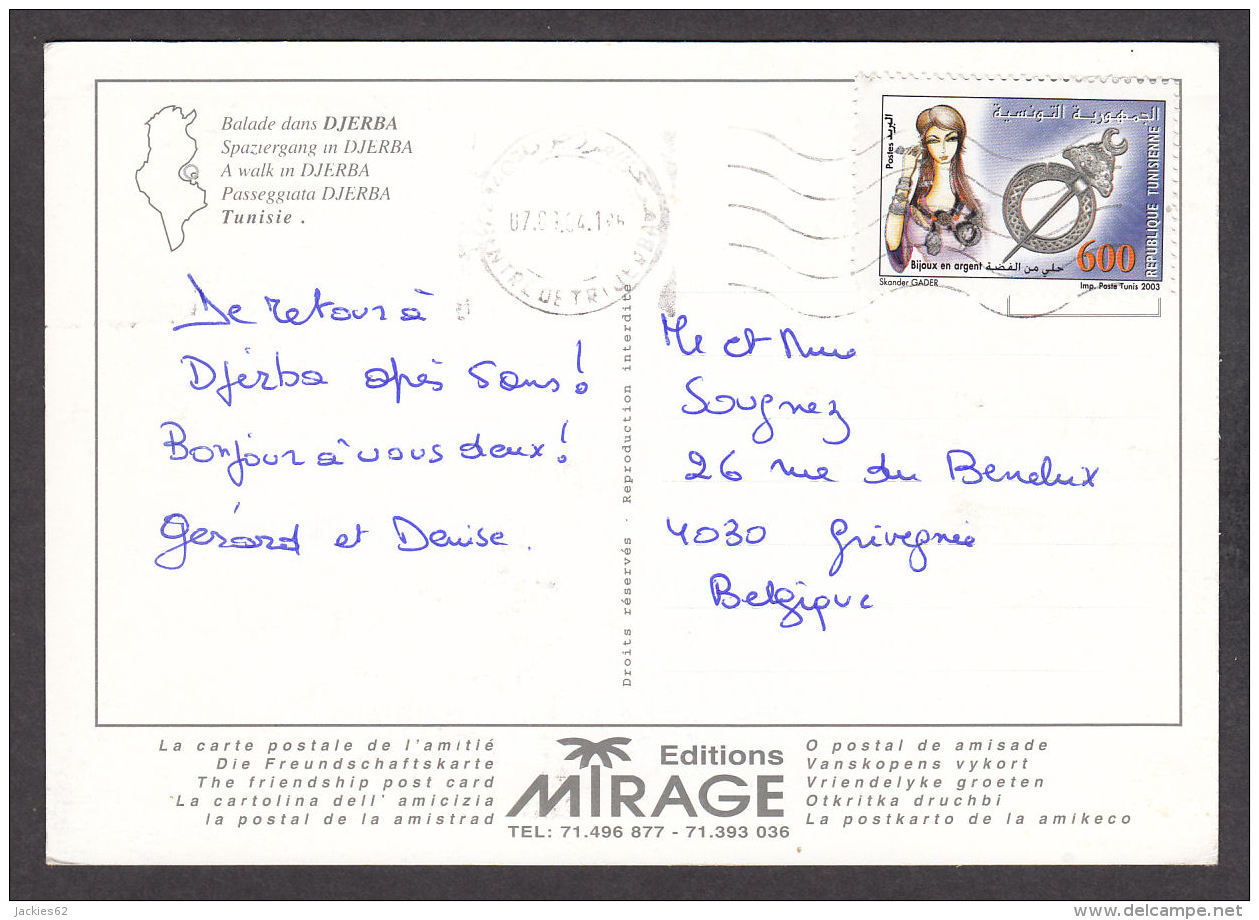 Balade dans DJERBA
Spaziergang in DJERBA
A walk in DJERBA
Passeggiata DJERBA
Tunisie .
De retour à
Djerba après 5ans !
Bonjour à vous deux !
Gérard et Denise .
07.09.04.
CENTRE DE TRI DJERBA
البريد
Postes
الجمهورية التونسية
REPUBLIQUE TUNISIENNE
Bijoux en argent حلي من الفضة
600
Skander GADER
Imp. Poste Tunis 2003
Mr et Mme
Sougnez
26 rue du Benelux
4030 Grivegnée
Belgique
Droits réservés · Reproduction interdite
La carte postale de l'amitié
Die Freundschaftskarte
The friendship post card
La cartolina dell' amicizia
la postal de la amistrad
Editions
MIRAGE
TEL: 71.496 877 - 71.393 036
O postal de amisade
Vanskopens vykort
Vriendelyke groeten
Otkritka druchbi
La postkarto de la amikeco
jackies62
delcampe.net